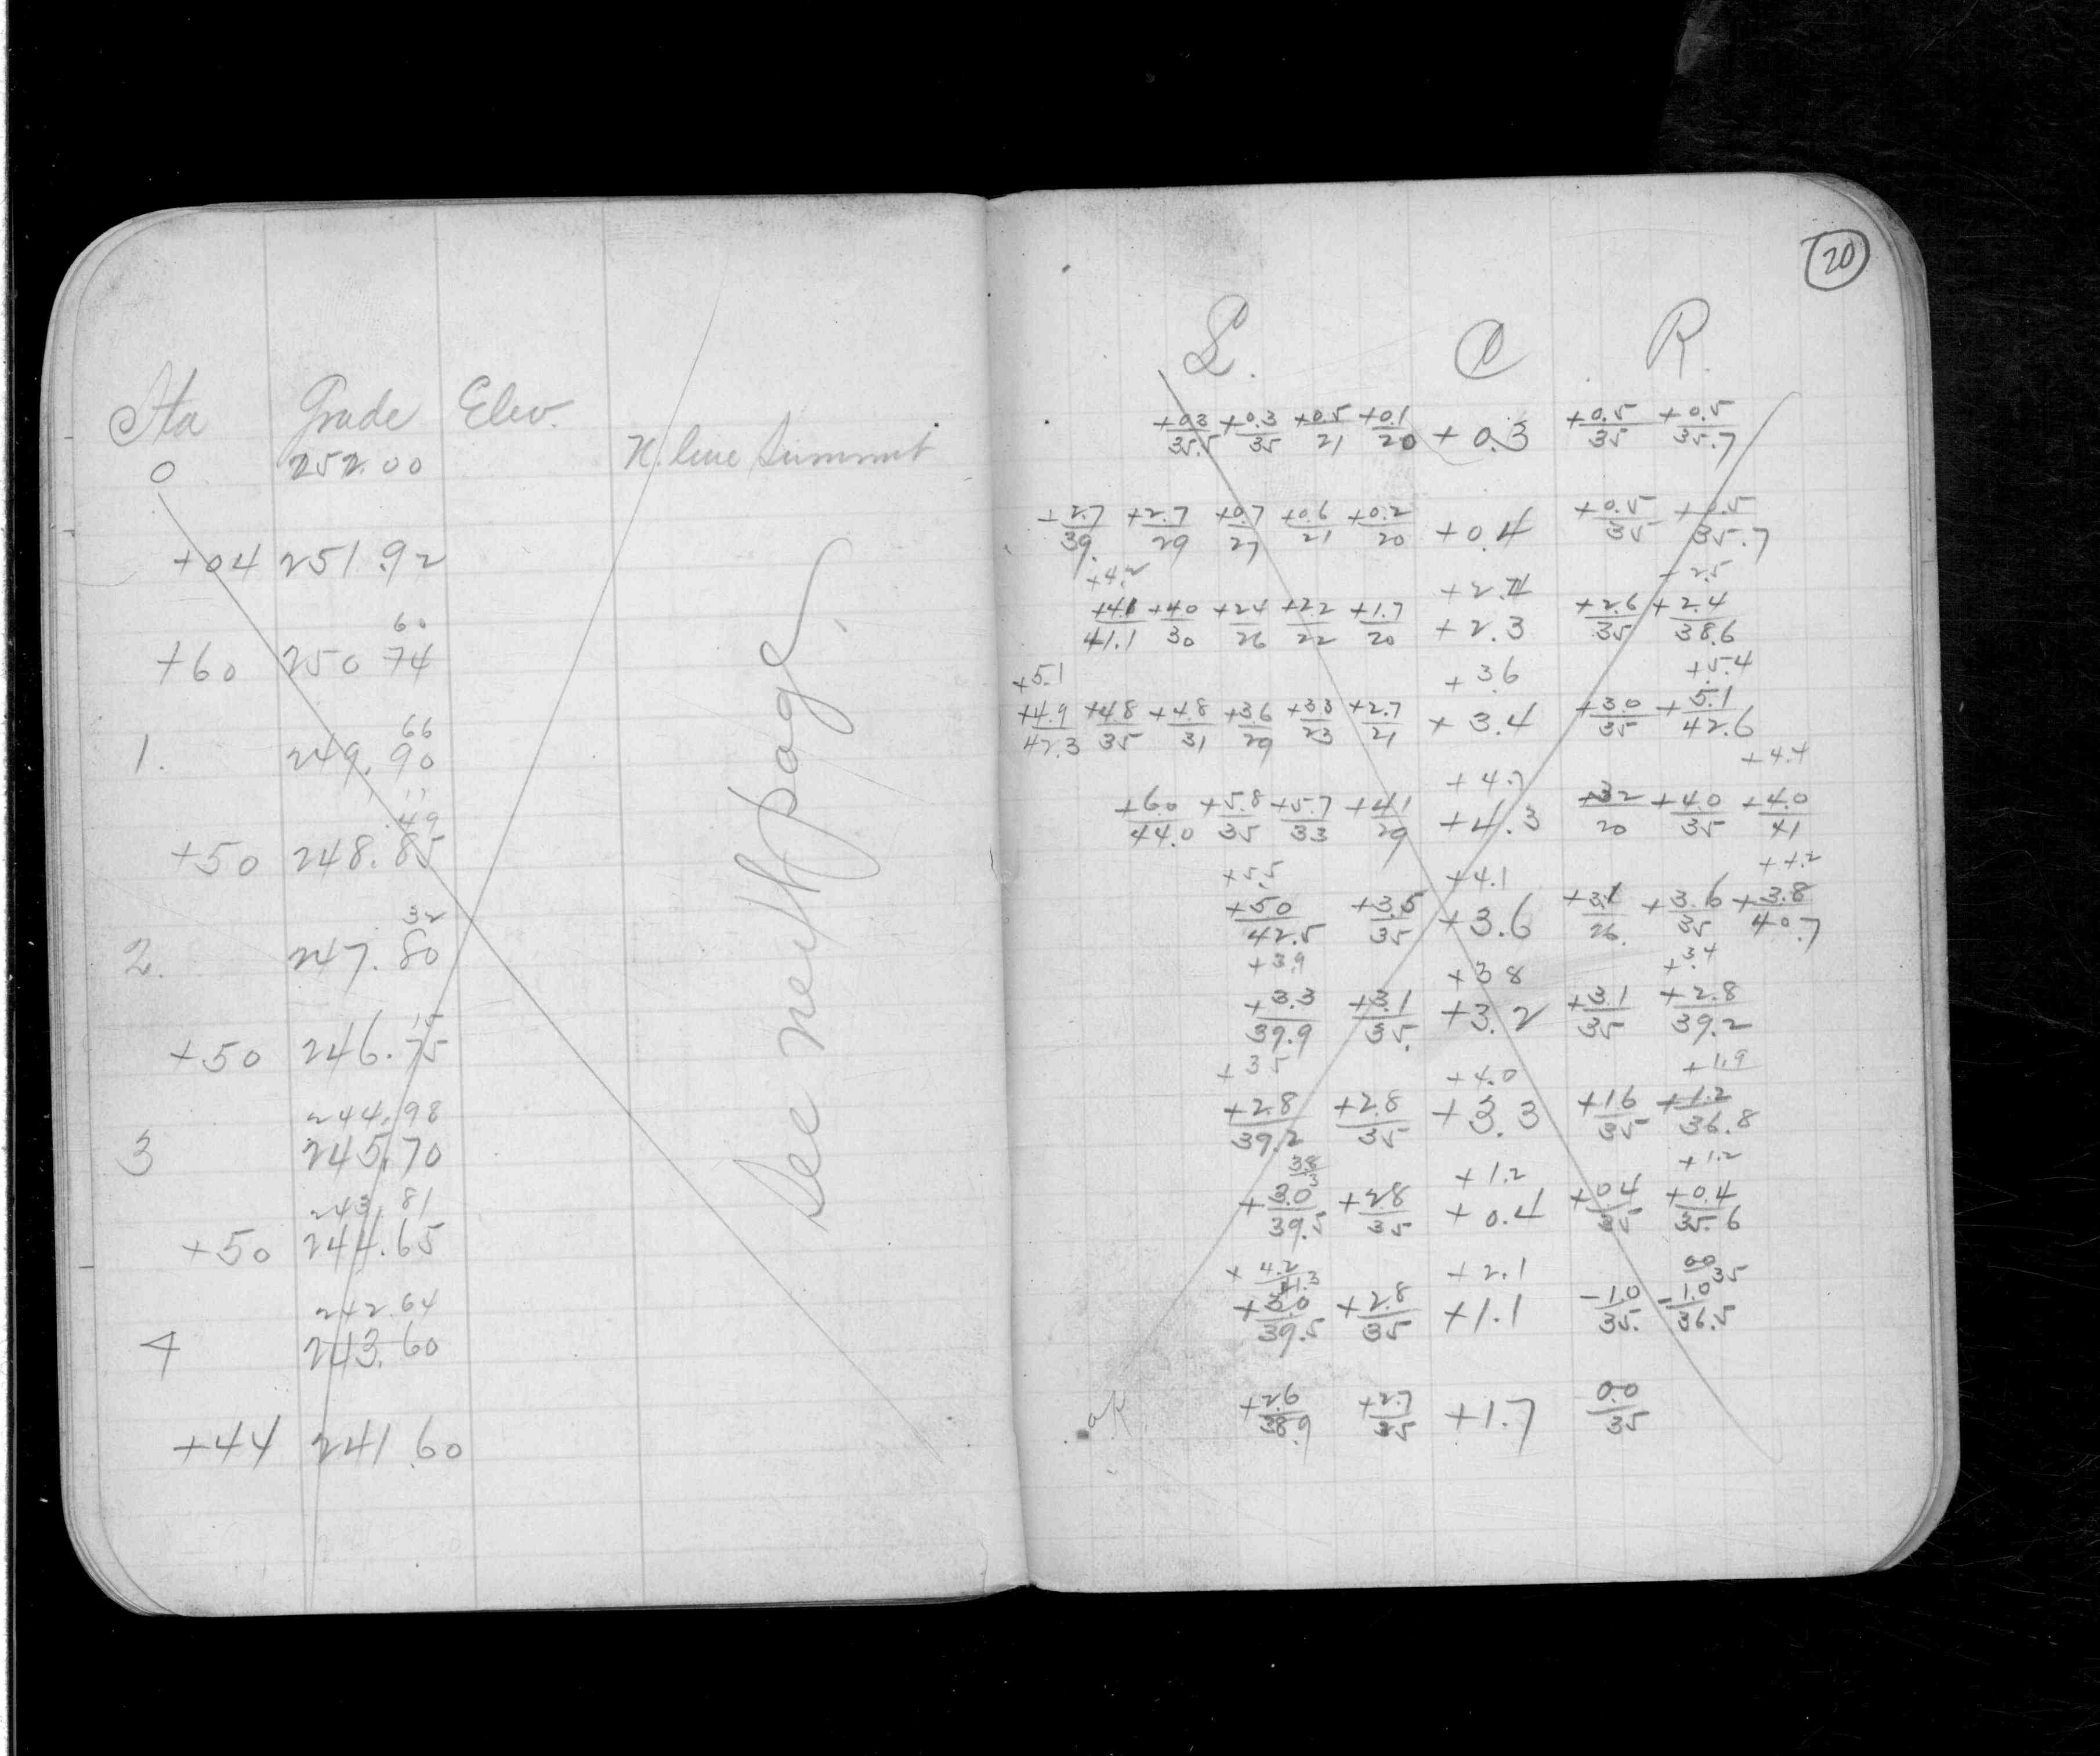 20
Sta Grade Elev.
0 252.00 N. line Summit
+04 251.92
60
+60 250 74
66
1. 249.90
.49
+50 248.85
32
2. 247.80
15
+50 246.75
244.98
3 245.70
243 81
+50 244.65
242.64
4 243.60
+44 241.60
See next page
L. C R.
+0.3/35.5 +0.3/35 +0.5/21 +0.1/20 +0.3 +0.5/35 +0.5/35.7
+2.7/39. +2.7/29 +0.7/27 +0.6/21 +0.2/20 +0.4 +0.5/35 +0.5/35.7
+4.2 +2.4 +2.5
+4.1/41.1 +4.0/30 +2.4/26 +2.2/22 +1.7/20 +2.3 +2.6/35 +2.4/38.6
+5.1 +3.6 +5.4
+4.9/42.3 +4.8/35 +4.8/31 +3.6/29 +3.3/23 +2.7/21 +3.4 +3.0/35 +5.1/42.6
+4.7 +4.4
+6.0/44.0 +5.8/35 +5.7/33 +4.1/29 +4.3 +3.2/20 +4.0/35 +4.0/41
+5.5 +4.1 +4.2
+5.0/42.5 +3.5/35 +3.6 +3.1/26. +3.6/35 +3.8/40.7
+3.9 +3.8 +3.4
+3.3/39.9 +3.1/35. +3.2 +3.1/35 +2.8/39.2
+3.5 +4.0 +1.9
+2.8/39.2 +2.8/35 +3.3 +1.6/35 +1.2/36.8
3.8 +1.2 +1.2
+3.0/39.5 +2.8/35 +0.4 +0.4/35 +0.4/35.6
+4.2/41.3 +2.1 0.0/35
+3.0/39.5 +2.8/35 +1.1 -1.0/35. -1.0/36.5
OK +2.6/38.9 +2.7/35 +1.7 0.0/35